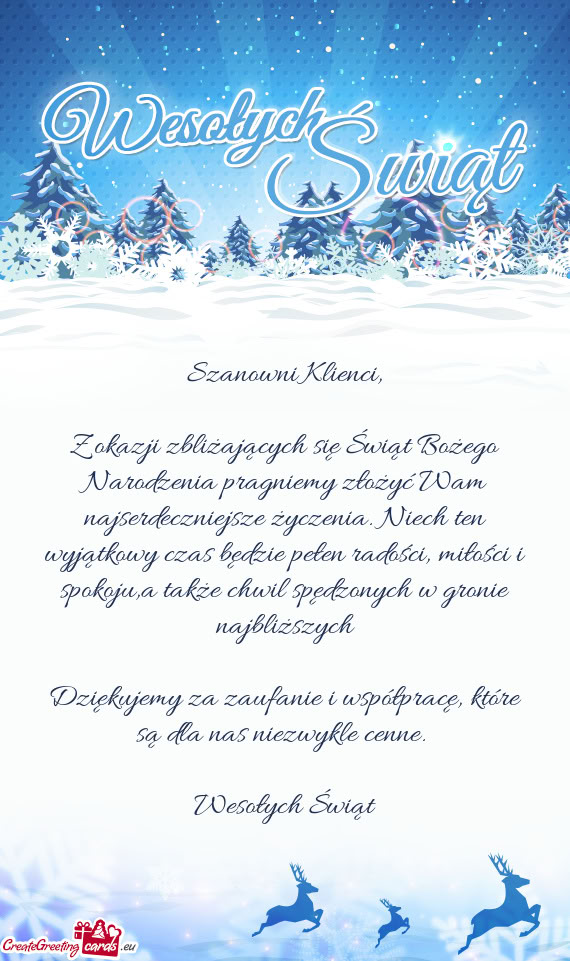 Wesołych
Świąt
Szanowni Klienci,
Z okazji zbliżających się Świąt Bożego
Narodzenia pragniemy złożyć Wam
najserdeczniejsze życzenia. Niech ten
wyjątkowy czas będzie pełen radości, miłości i
spokoju,a także chwil spędzonych w gronie
najbliższych
Dziękujemy za zaufanie i współpracę, które
są dla nas niezwykle cenne.
Wesołych Świąt
CreateGreeting cards .eu